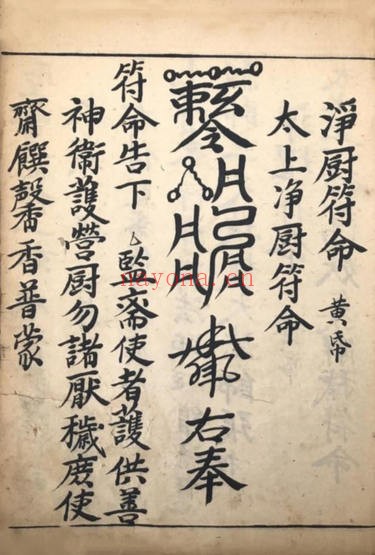 淨厨符命 黃帋
太上净厨符命
右奉
符命告下 監斋使者護供善
神衞護營厨勿諸厭穢庶使
齋饌馨香普蒙
nayona.cn